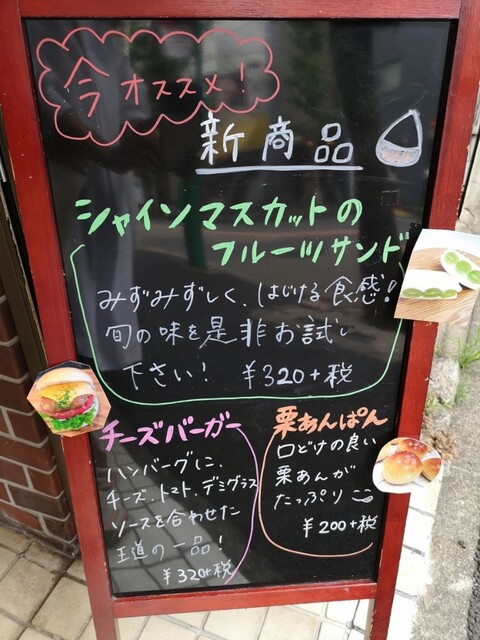 今オススメ!
新商品
シャインマスカットの
フルーツサンド
みずみずしく、はじける食感!
旬の味を是非お試し
下さい! ¥320+税
チーズバーガー
ハンバーグに、
チーズ、トマト、デミグラス
ソースを合わせた
王道の一品!
¥320+税
栗あんぱん
口どけの良い
栗あんが
たっぷり
¥200+税